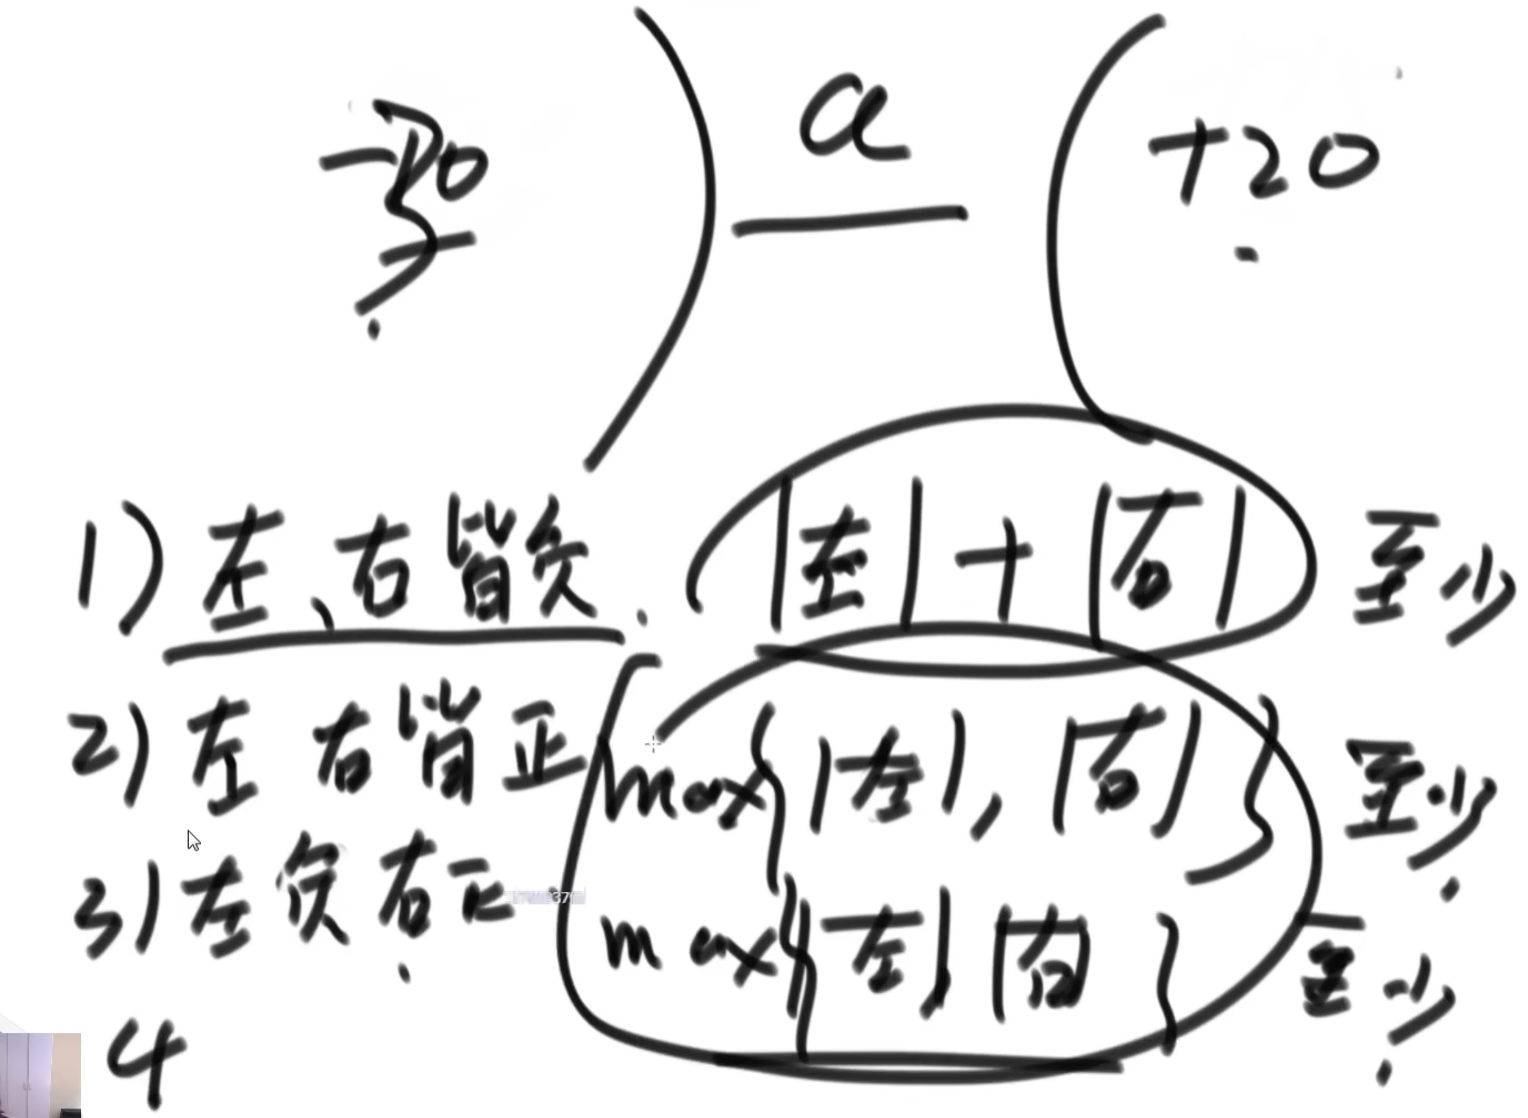 a
+20
1) 左、右皆负. |左| + |右| 至少
2) 左 右皆正 max{|左|, |右|} 至少.
3) 左负右正. max{|左| |右|} 至少.
4